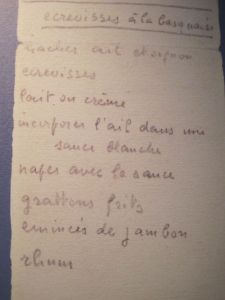 écrevisses à la basquaise
hacher ail et oignon
écrevisses
lait ou crème
incorporer l'ail dans une
sauce blanche
naper avec la sauce
grattons frits
émincés de jambon
rhum